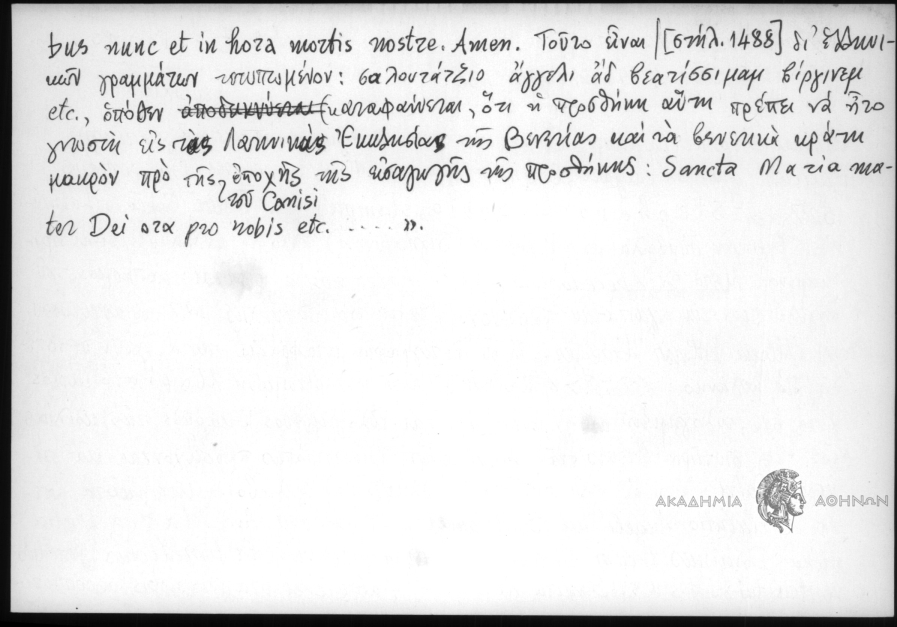 bus nunc et in hora mortis nostre. Amen. Τοῦτο εἶναι [στήλ. 1488] δι' ἑλληνι-
κῶν γραμμάτων τετυπωμένον: σαλουτάτζιο ἄγγελι ἀδ βεατίσσιμαμ βίργινεμ
etc., ὁπόθεν ἀποδεικνύεται (καταφαίνεται, ὅτι ἡ προσθήκη αὕτη πρέπει νὰ ἦτο
γνωστὴ εἰς τὰς Λατινικὰς Ἐκκλησίας τῆς Βενετίας καὶ τὰ βενετικὰ κράτη
μακρὸν πρὸ τῆς ἐποχῆς τῆς εἰσαγωγῆς τῆς προσθήκης: Sancta Maria ma-
τοῦ Canisi
ter Dei ora pro nobis etc. ..... ».
ΑΚΑΔΗΜΙΑ ΑΘΗΝΩΝ